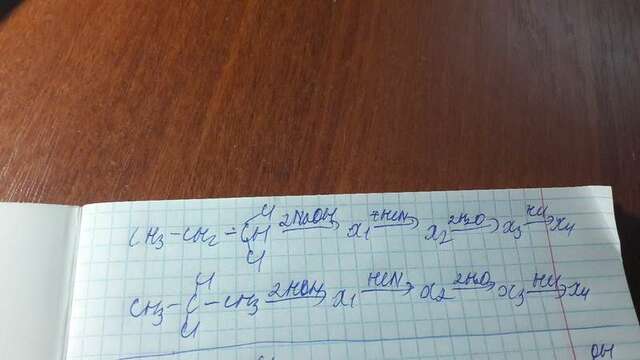 Cl
CH3 - CH2 - CH 2NaOH → x1 +HCN → x2 2H2O → x3 HCl → x4
Cl
Cl
CH3 - C - CH3 2NaOH → x1 HCN → x2 2H2O → x3 HCl → x4
Cl